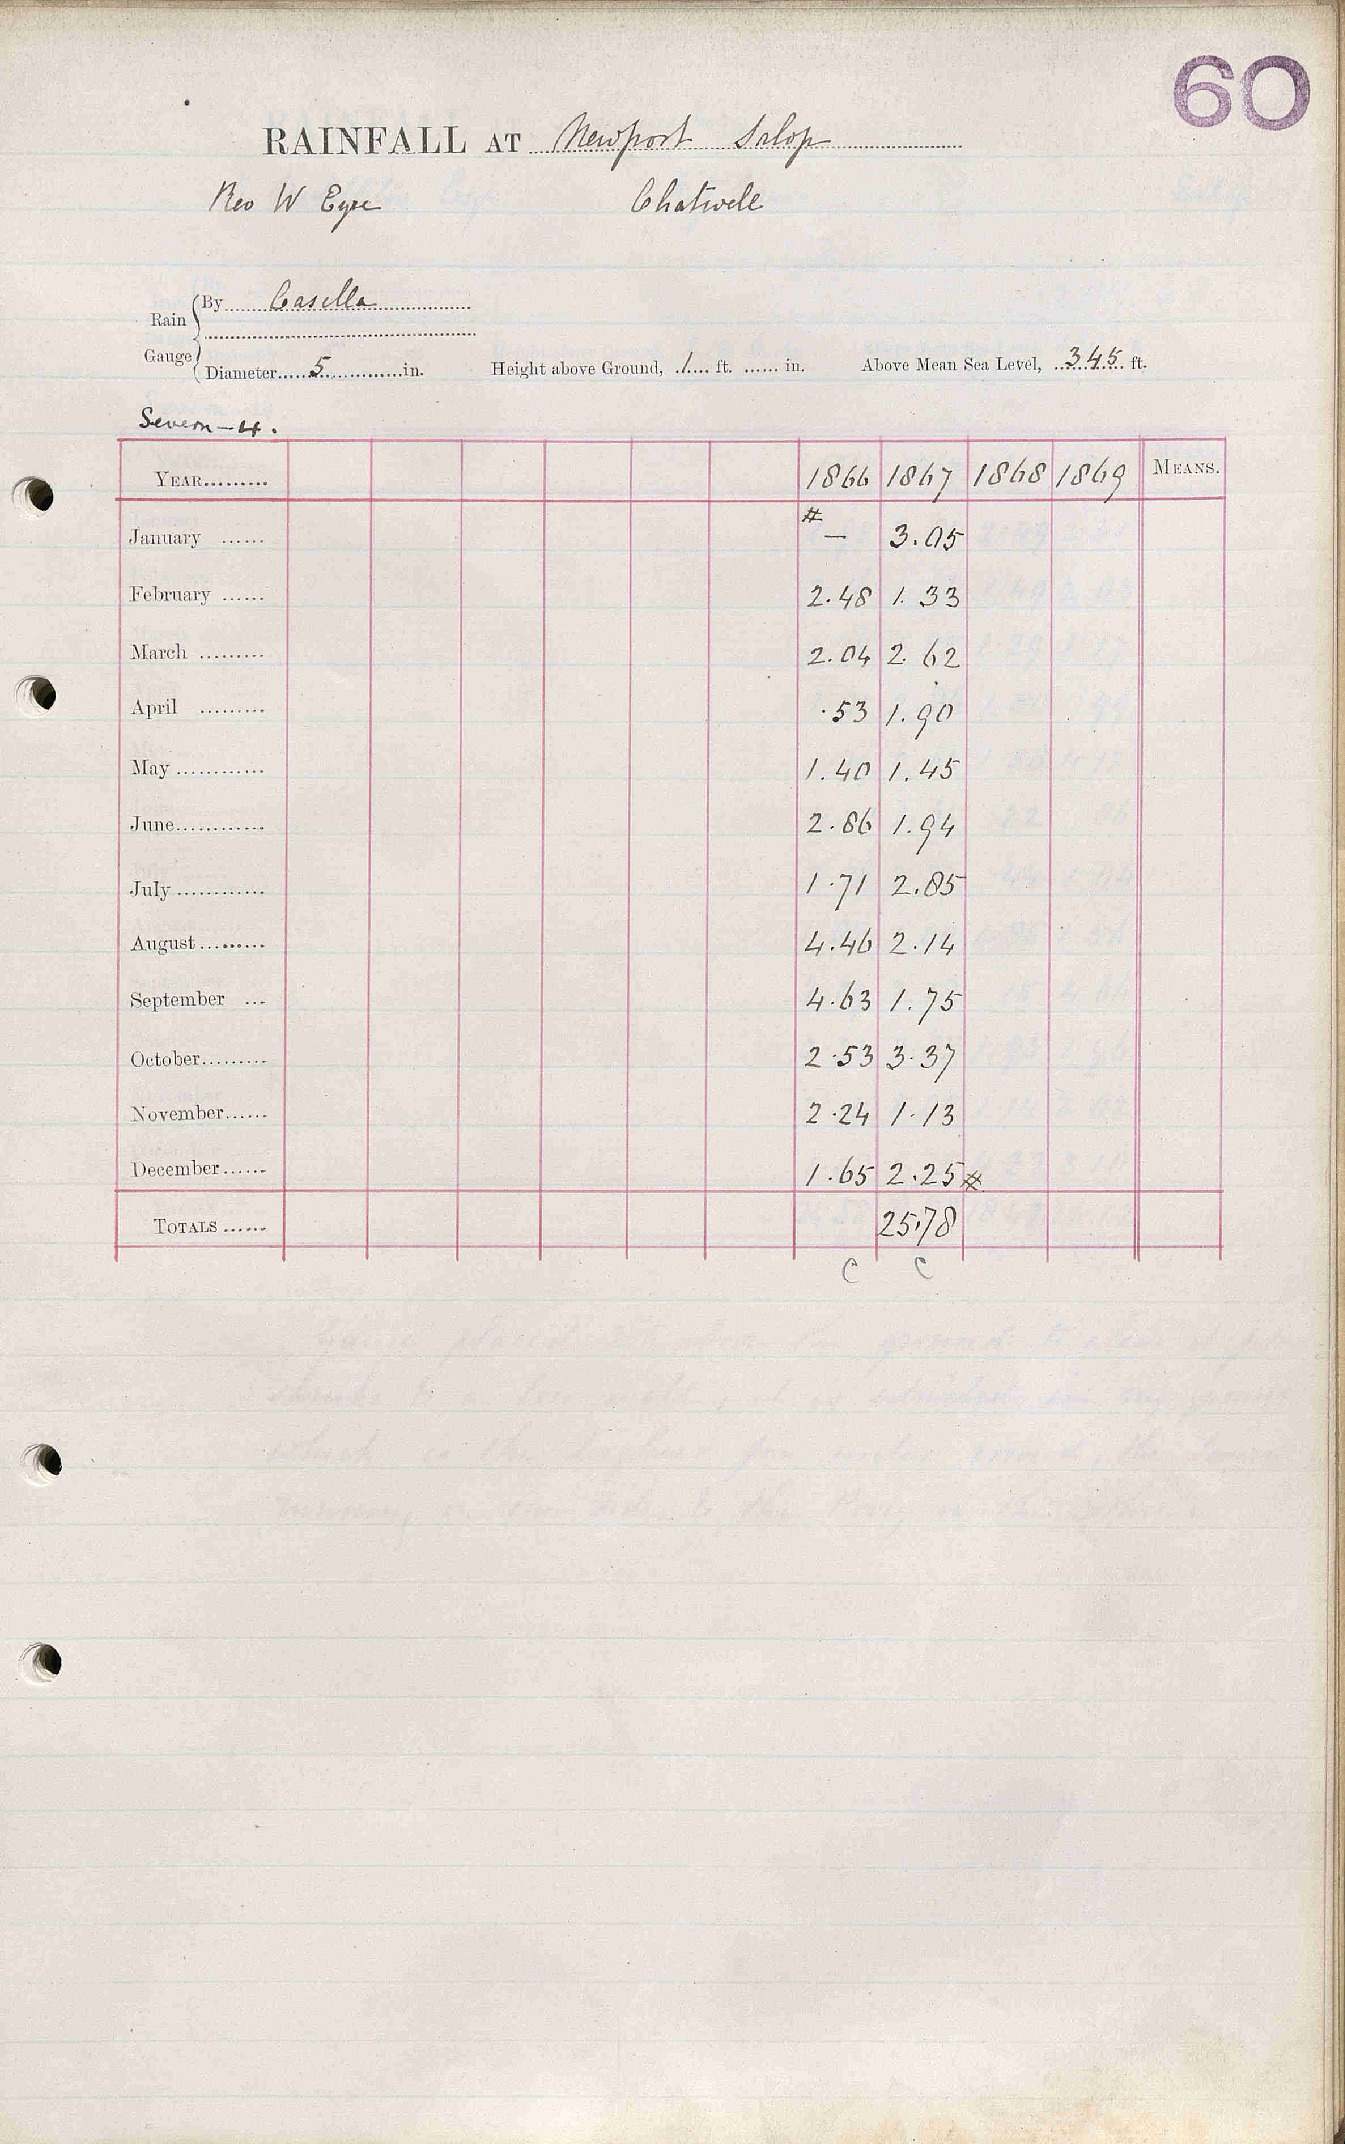 60
RAINFALL AT Newport Salop
Rev W Eyre Chatwell
Rain Gauge
By Casella
Diameter 5 in. Height above Ground, 1 ft. in. Above Mean Sea Level, 345 ft.
Severn - 4.
YEAR 1866 1867 1868 1869 MEANS.
#
January — 3.05
February 2.48 1.33
March 2.04 2.62
April .53 1.90
May 1.40 1.45
June 2.86 1.94
July 1.71 2.85
August 4.46 2.14
September 4.63 1.75
October 2.53 3.37
November 2.24 1.13
December 1.65 2.25 #
TOTALS 25.78
C C